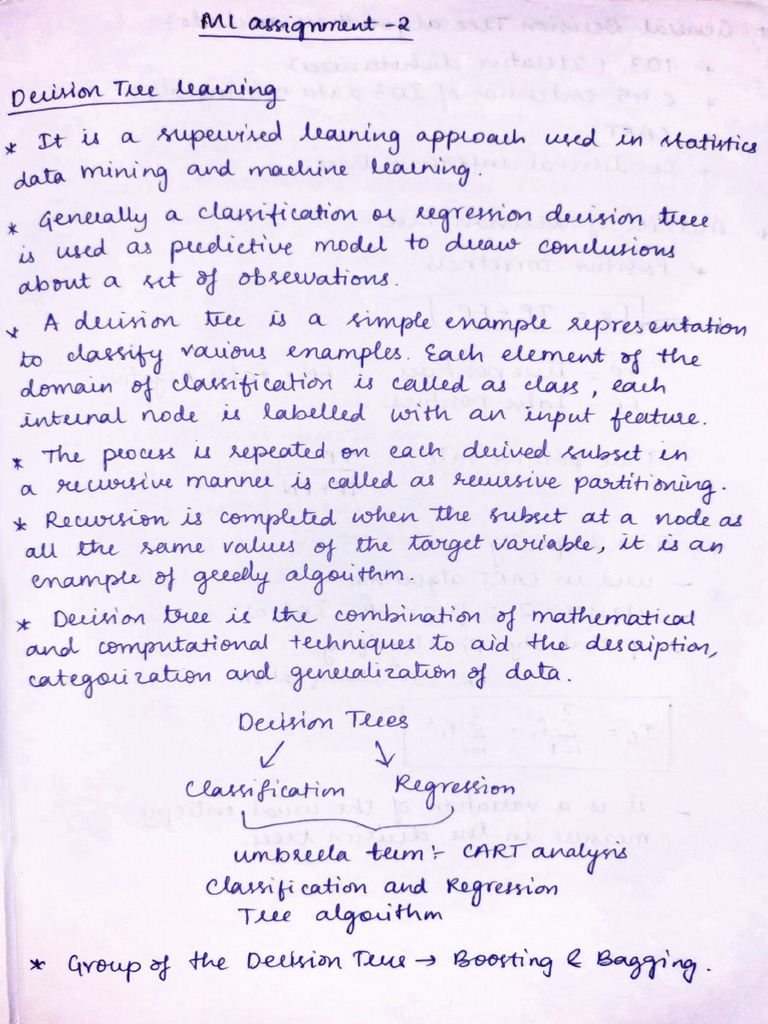 ML assignment - 2
Decision Tree learning
* It is a supervised learning approach used in statistics
data mining and machine learning.
* Generally a classification or regression decision tree
is used as predictive model to draw conclusions
about a set of observations.
* A decision tree is a simple example representation
to classify various examples. Each element of the
domain of classification is called as class, each
internal node is labelled with an input feature.
* The process is repeated on each derived subset in
a recursive manner is called as recursive partitioning.
* Recursion is completed when the subset at a node as
all the same values of the target variable, it is an
example of greedy algorithm.
* Decision tree is the combination of mathematical
and computational techniques to aid the description,
categorization and generalization of data.
Decision Trees
Classification Regression
umbreela term :- CART analysis
Classification and Regression
Tree algorithm
* Group of the Decision Tree → Boosting & Bagging.